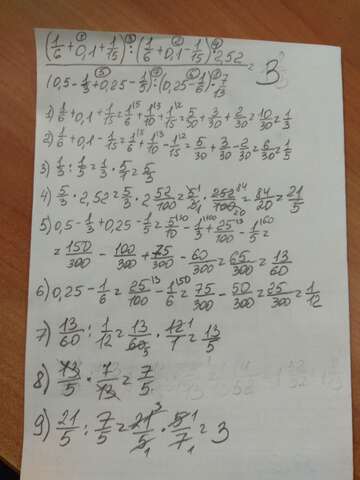 (1/6 + 0,1 + 1/15) : (1/6 + 0,1 - 1/15) · 2,52
(0,5 - 1/3 + 0,25 - 1/5) : (0,25 - 1/6) · 7/13
= 3
1) 1/6 + 0,1 + 1/15 = 1/6 + 1/10 + 1/15 = 5/30 + 3/30 + 2/30 = 10/30 = 1/3
2) 1/6 + 0,1 - 1/15 = 1/6 + 1/10 - 1/15 = 5/30 + 3/30 - 2/30 = 6/30 = 1/5
3) 1/3 : 1/5 = 1/3 · 5/1 = 5/3
4) 5/3 · 2,52 = 5/3 · 2 52/100 = 5/3 · 252/100 = 84/20 = 21/5
5) 0,5 - 1/3 + 0,25 - 1/5 = 5/10 - 1/3 + 25/100 - 1/5 =
= 150/300 - 100/300 + 75/300 - 60/300 = 65/300 = 13/60
6) 0,25 - 1/6 = 25/100 - 1/6 = 75/300 - 50/300 = 25/300 = 1/12
7) 13/60 : 1/12 = 13/60 · 12/1 = 13/5
8) 13/5 · 7/13 = 7/5
9) 21/5 : 7/5 = 21/5 · 5/7 = 3